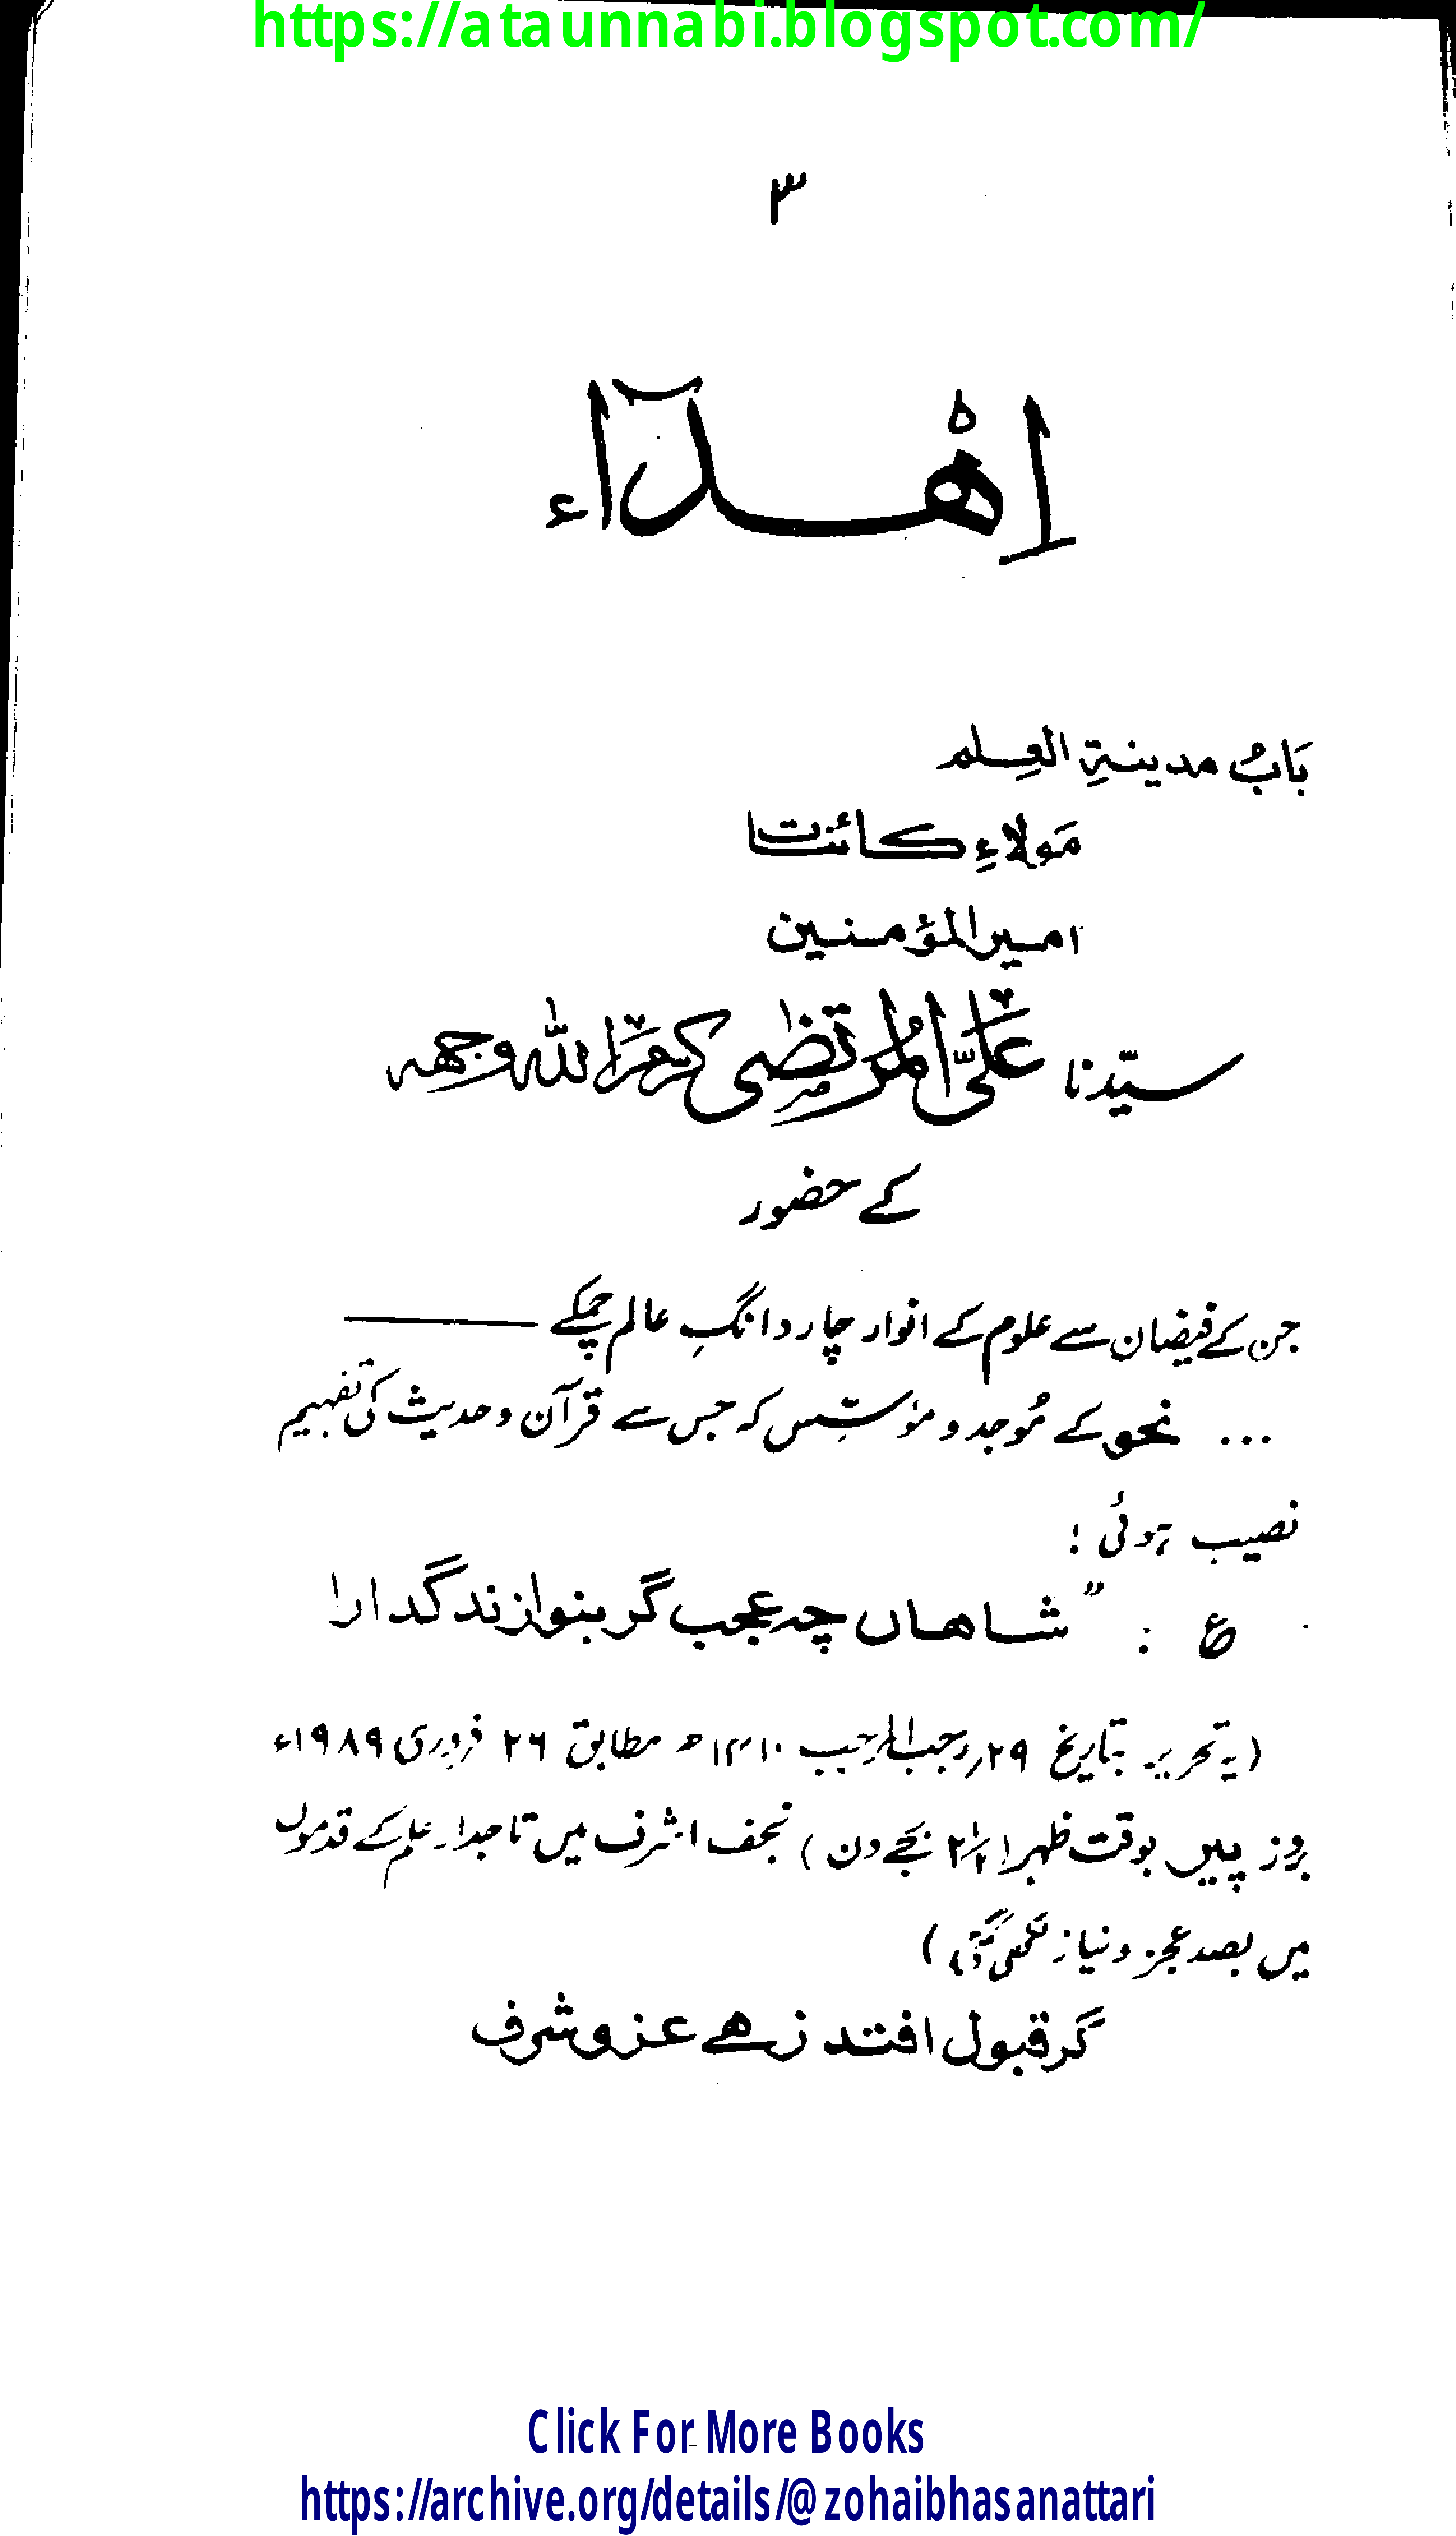 https://ataunnabi.blogspot.com/
۳
اِهْدَآء
بَابُ مدینۃِ العِلم
مَولاءِ کائنات
امیرالمؤمنین
سیّدنا عَلیّ المُرتضٰی کرّمَ اللہ وجھہ
کے حضور
جن کے فیضان سے علوم کے انوار چار دانگِ عالم چمکے ———
... نحو کے مُوجد و مؤسِّس کہ جس سے قرآن و حدیث کی تفہیم
نصیب ہوئی :
ع : " شاھاں چہ عجب گر بنوازند گدا را
(یہ تحریر بتاریخ ۲۹ رجب المرجب ۱۴۱۰ھ مطابق ۲۶ فروری ۱۹۸۹ء
بروز پیر بوقت ظہر (۲½ بجے دن) نجف اشرف میں تاجدارِ علم کے قدموں
میں بصد عجز و نیاز لکھی گئی)
گر قبول افتد زھے عز و شرف
Click For More Books
https://archive.org/details/@zohaibhasanattari